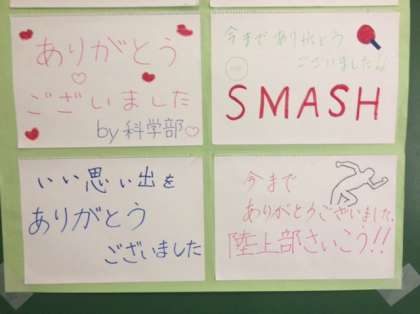 ありがとう
ございました
by 科学部
今までありがとう
ございました!!
SMASH
いい思い出を
ありがとう
ございました
今まで
ありがとうございました.
陸上部さいこう!!